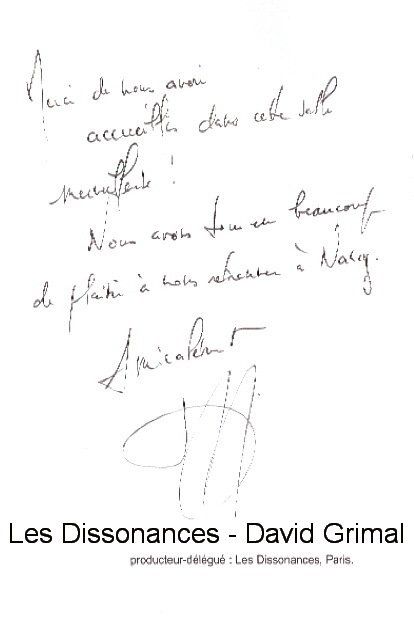 Merci de nous avoir
accueillis dans cette salle
merveilleuse !
Nous avons tous eu beaucoup
de plaisir à nous retrouver à Nancy.
Amicalement
Les Dissonances - David Grimal
producteur-délégué : Les Dissonances, Paris.